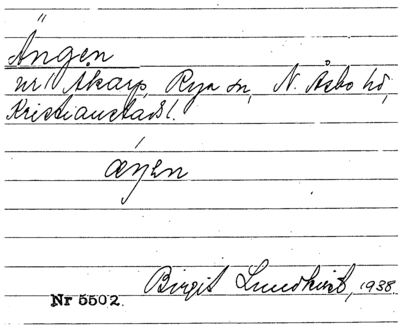 Ängen
nr 1 Åkarp, Rya sn, N. Åsbo hd,
Kristianstads l.
Birgit Lundkvist, 1938.
Nr 5502.